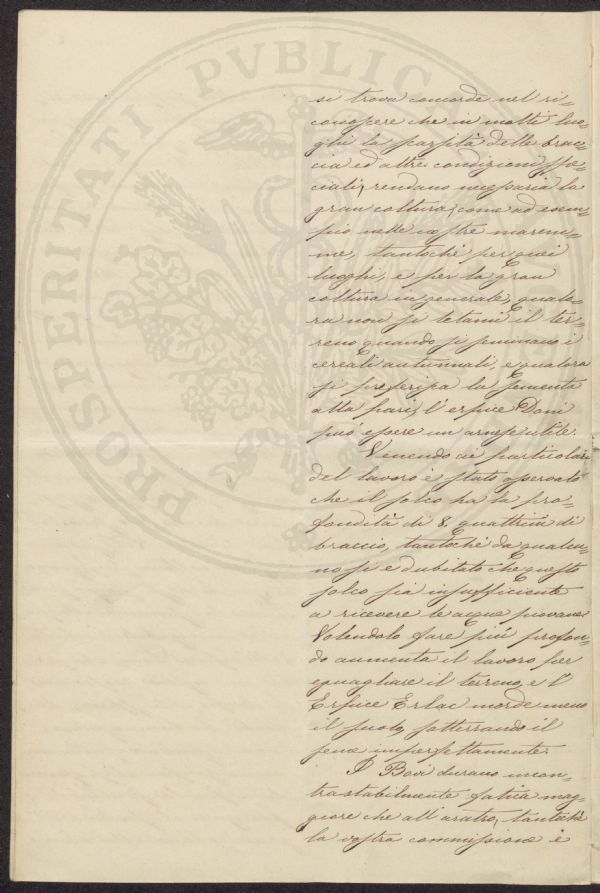 PROSPERITATI PVBLIC
si trova concorde nel ri-
conoscere che in molti luo-
ghi la scarsità delle brac-
cia ed altre condizioni spe-
ciali, rendano necessaria la
gran coltura, come ad esem-
pio nelle nostre marem-
me, tantochè per quei
luoghi, e per la gran
coltura in generale, qualo-
ra non si letami il ter-
reno quando si seminano i
cereali autunnali, e qualora
si preferisca la semente
alla pari, l'erpice Dani
può essere un arnese utile.
Venendo ai particolari
del lavoro è stato osservato
che il solco ha la pro-
fondità di 8. quattrini di
braccio, tantochè da qualcu-
no si è dubitato che questo
solco sia insufficiente
a ricevere le acque piovane.
Volendolo fare più profon-
do aumenta il lavoro per
eguagliare il terreno, e l'
Erpice Erlac morde meno
il suolo, sotterrando il
seme imperfettamente.
I Bovi durano incon-
trastabilmente fatica mag-
giore che all'aratro, tantochè
la vostra commissione è